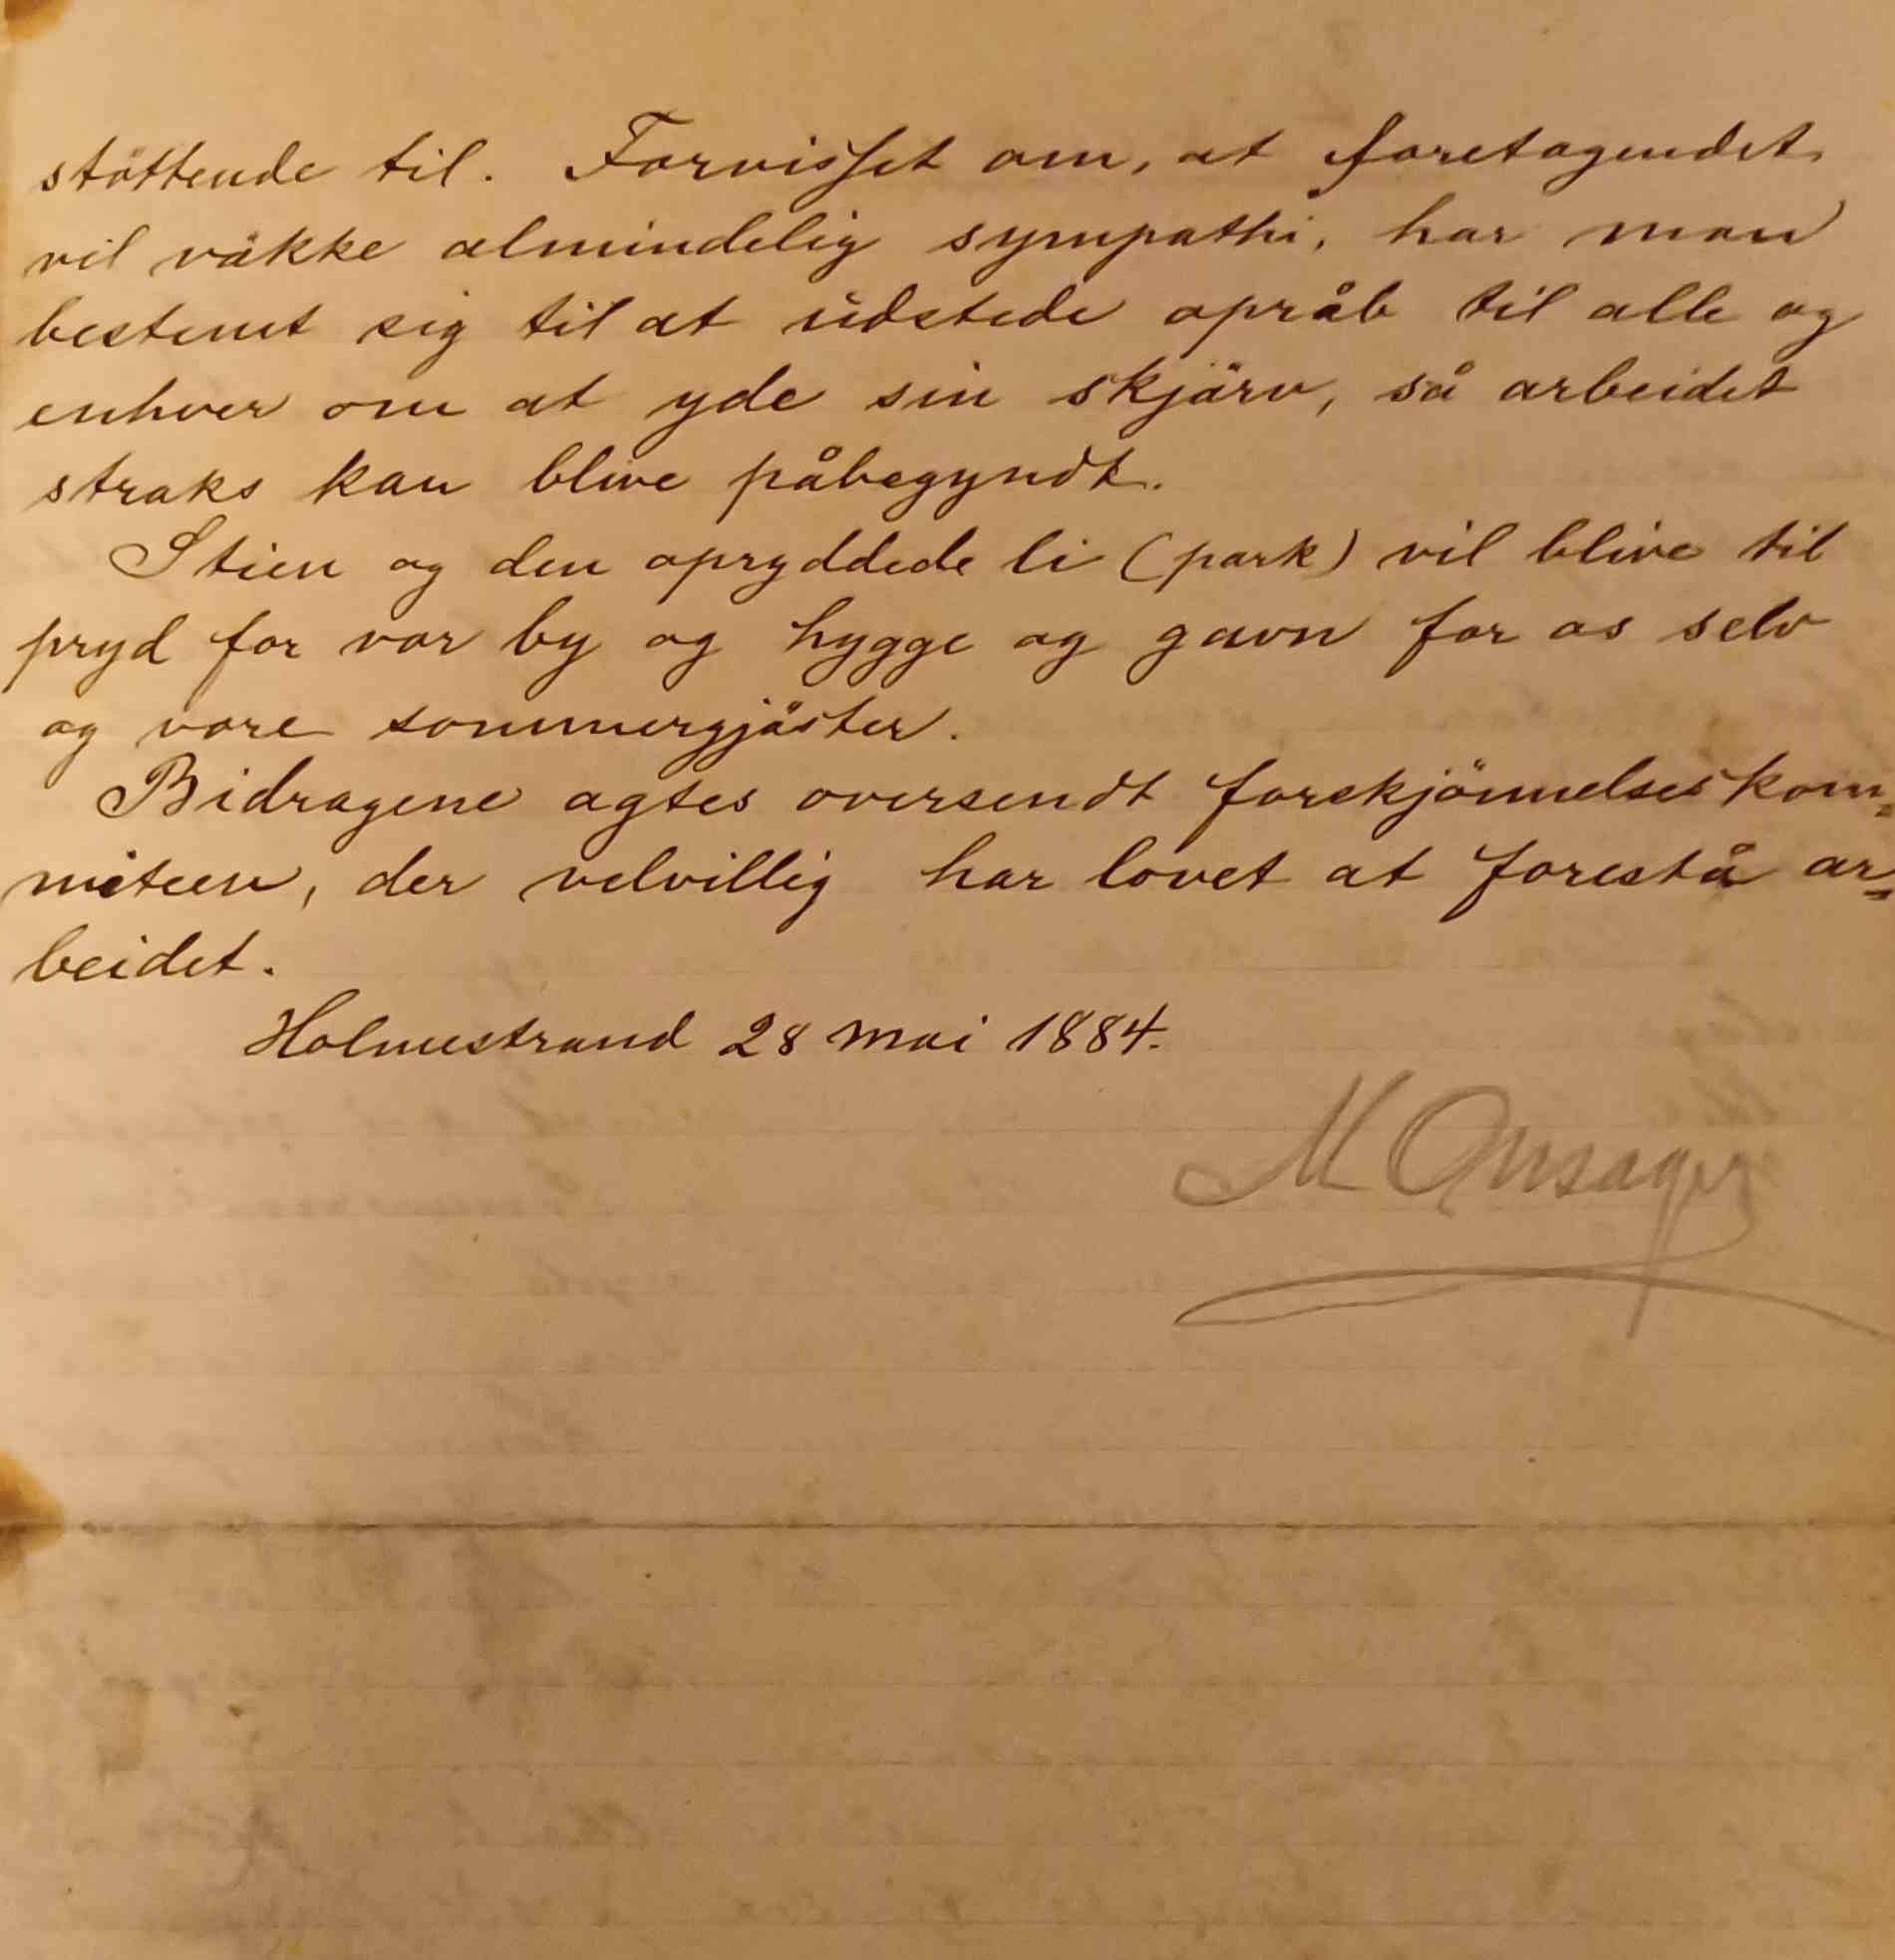 stöttende til. Forvisset om, at foretagendet
vil väkke almindelig sympathi, har man
bestemt sig til at udstede opråb til alle og
enhver om at yde sin skjärv, så arbeidet
straks kan blive påbegyndt.
Stien og den opryddede li (park) vil blive til
pryd for vor by og hygge og gavn for os selv
og vore sommergjäster.
Bidragene agtes oversendt forskjönnelseskom-
miteen, der velvillig har lovet at forestå ar-
beidet.
Holmestrand 28 mai 1884.
M Onsager